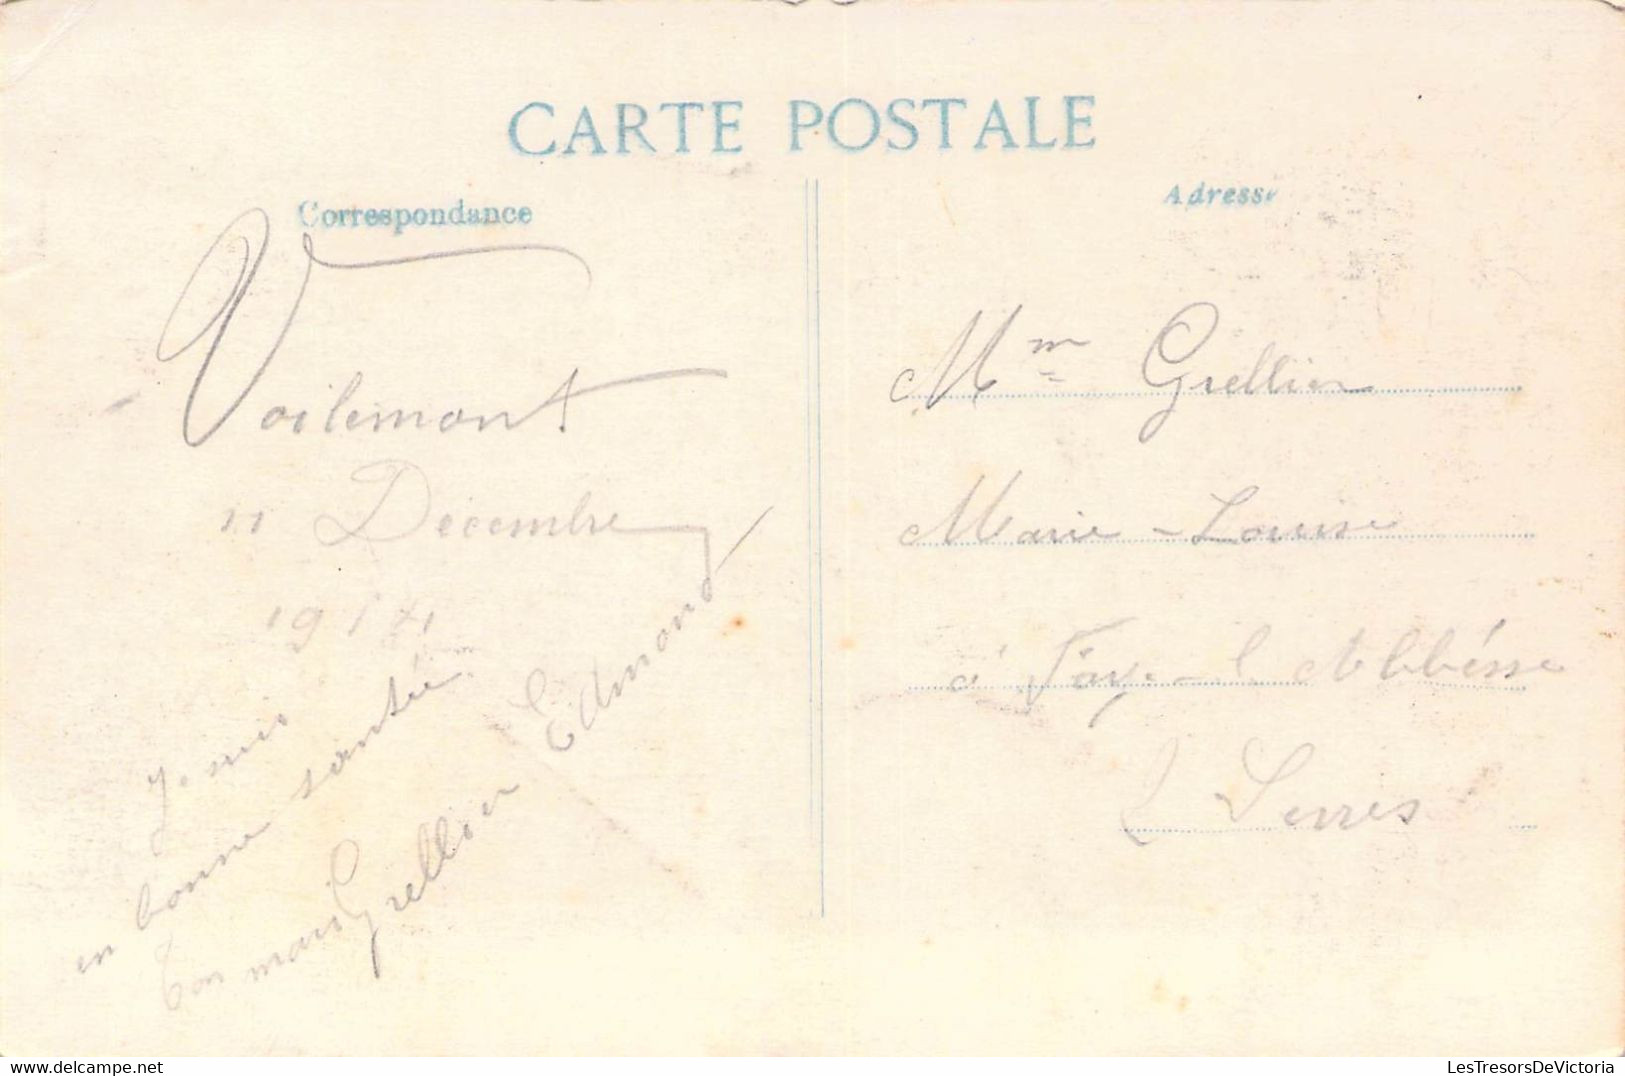 CARTE POSTALE
Correspondance
Adresse
Voilemont
11 Décembre
1914
Je suis
en bonne santée
Ton mari Grellier Edmond
Mm Grellier
Marie-Louise
à Faye-l'Abbésse
2 Sevres
delcampe.net
LesTresorsDeVictoria